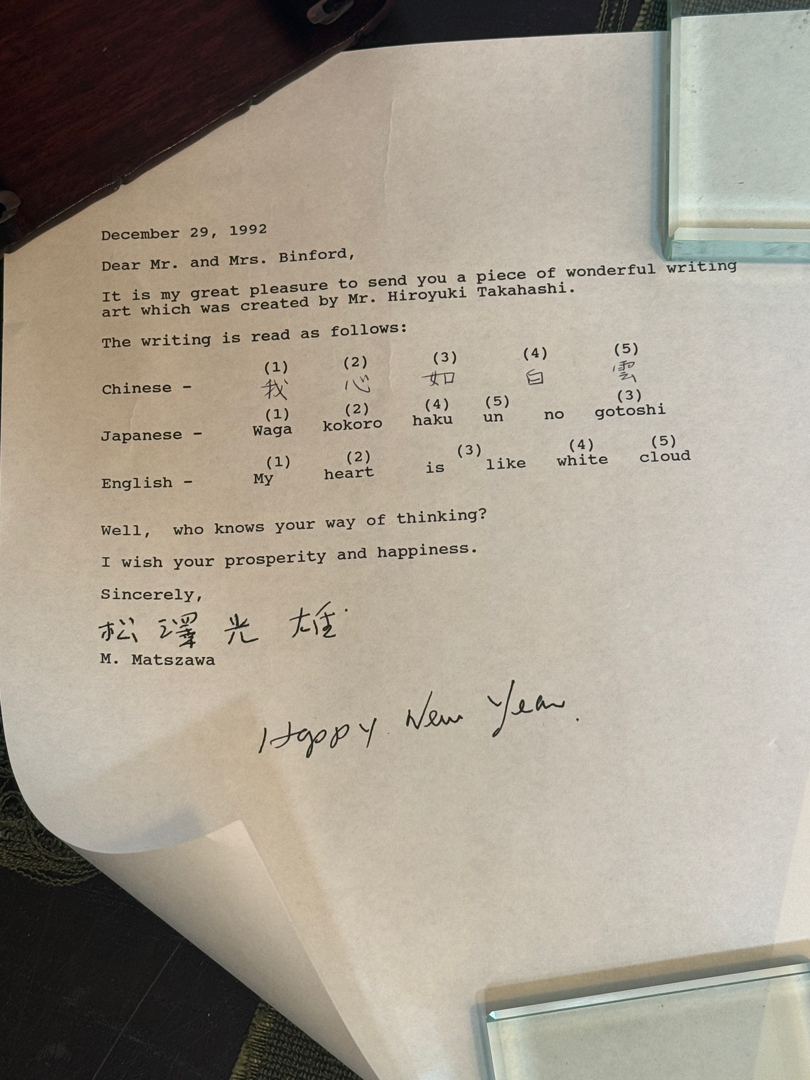 December 29, 1992
Dear Mr. and Mrs. Binford,
It is my great pleasure to send you a piece of wonderful writing
art which was created by Mr. Hiroyuki Takahashi.
The writing is read as follows:
(1) (2) (3) (4) (5)
Chinese - 我 心 如 白 雲
(1) (2) (4) (5) (3)
Japanese - Waga kokoro haku un no gotoshi
(1) (2) (3) (4) (5)
English - My heart is like white cloud
Well, who knows your way of thinking?
I wish your prosperity and happiness.
Sincerely,
松澤光雄
M. Matszawa
Happy New Year.